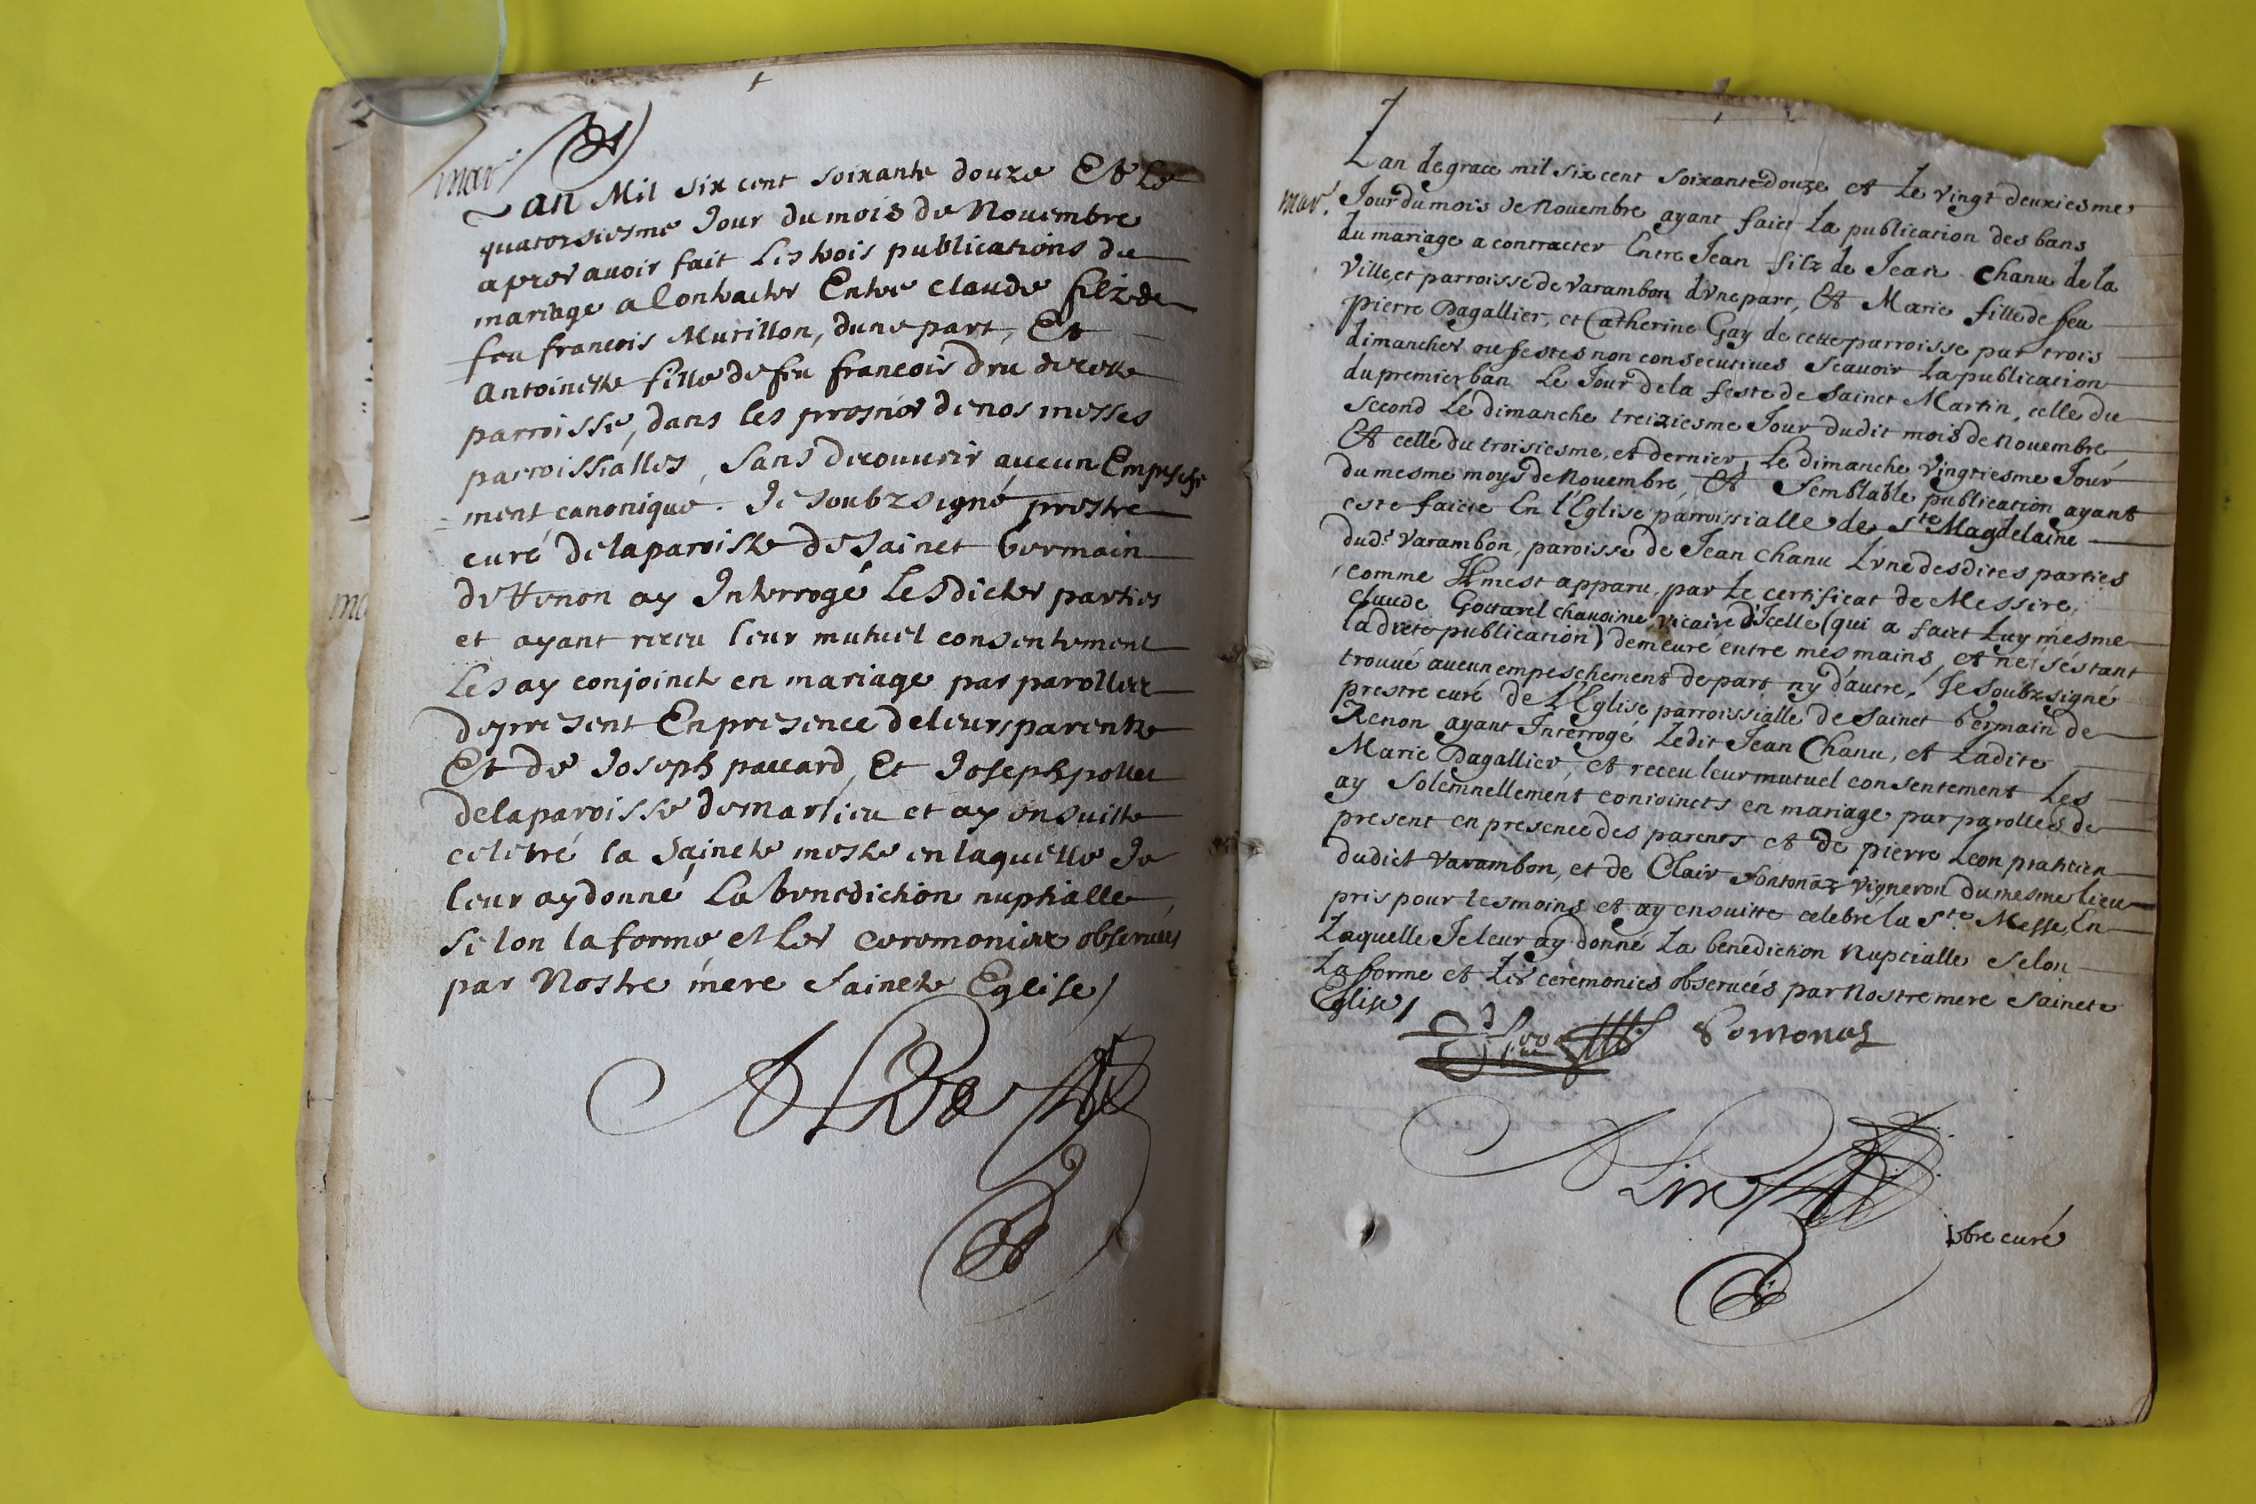 mar.
Lan Mil six cent soixante douze Et le
quatorsiesme Jour du mois de Novembre
apres avoir fait les trois publications du
mariage a Contracter Entre Claude filz de
feu francois Murillon, dune part, Et
Antoinette fille de feu francois Dru de cette
parroisse, dans les prosnes de nos messes
parroissialles, sans decouvrir aucun Empesche
ment canonique. Je soubzsigné prestre
curé de la paroisse de Sainct Germain
de Renon ay Interrogé Lesdictes parties
et ayant receu leur mutuel consentement
Les ay conjoinct en mariage par parolles
de present En presence de leurs parents
Et de Joseph paccard, Et Joseph pollet
de la paroisse de Marlieu et ay ensuitte
celebré la Saincte messe en laquelle Je
leur ay donné La benediction nuptialle
selon la forme et les ceremonies observees
par Nostre mere Saincte Eglise/
mar.
Lan de grace mil six cent soixante douze et Le vingt deuxiesme
Jour du mois de Novembre ayant faict La publication des bans
du mariage a contracter Entre Jean filz de Jean Chanu de la
Ville, et parroisse de Varambon d'vne part, Et Marie fille de feu
Pierre Dagallier, et Catherine Gay de cette parroisse par trois
dimanches ou festes non consecutives Scavoir La publication
du premier ban Le Jour de la feste de Sainct Martin, celle du
second Le dimanche treiziesme Jour dudit mois de Novembre,
Et celle du troisiesme, et dernier, Le dimanche Vingtiesme Jour
du mesme moys de Novembre, Et Semblable publication ayant
este faicte En l'Eglise parroissialle de Ste Magdelaine
dudt Varambon, paroisse de Jean Chanu L'vne desdites parties
comme Il m'est apparu par Le certificat de Messire
Claude Gottarel chanoine, vicaire d'Icelle (qui a faict Luy mesme
ladicte publication) demeuré entre mes mains, et ne s'éstant
trouvé aucun empeschement de part ny d'autre. Je Soubzsigné
prestre curé de L'Eglise parroissialle de Sainct Germain de
Renon ayant Interrogé Ledit Jean Chanu, et Ladite
Marie Dagallier, et receu leur mutuel consentement Les
ay Solemnellement conioincts en mariage par parolles de
present en presence des parents et de pierre Leon praticien
dudict Varambon, et de Clair Fontonaz vigneron du mesme lieu
pris pour tesmoins et ay ensuitte celebré la Ste. Messe, En
Laquelle Je leur ay donné La benediction Nuptialle Selon
La forme et Les ceremonies observées par Nostre mere Saincte
Eglise/
Fontonas
pbre curé